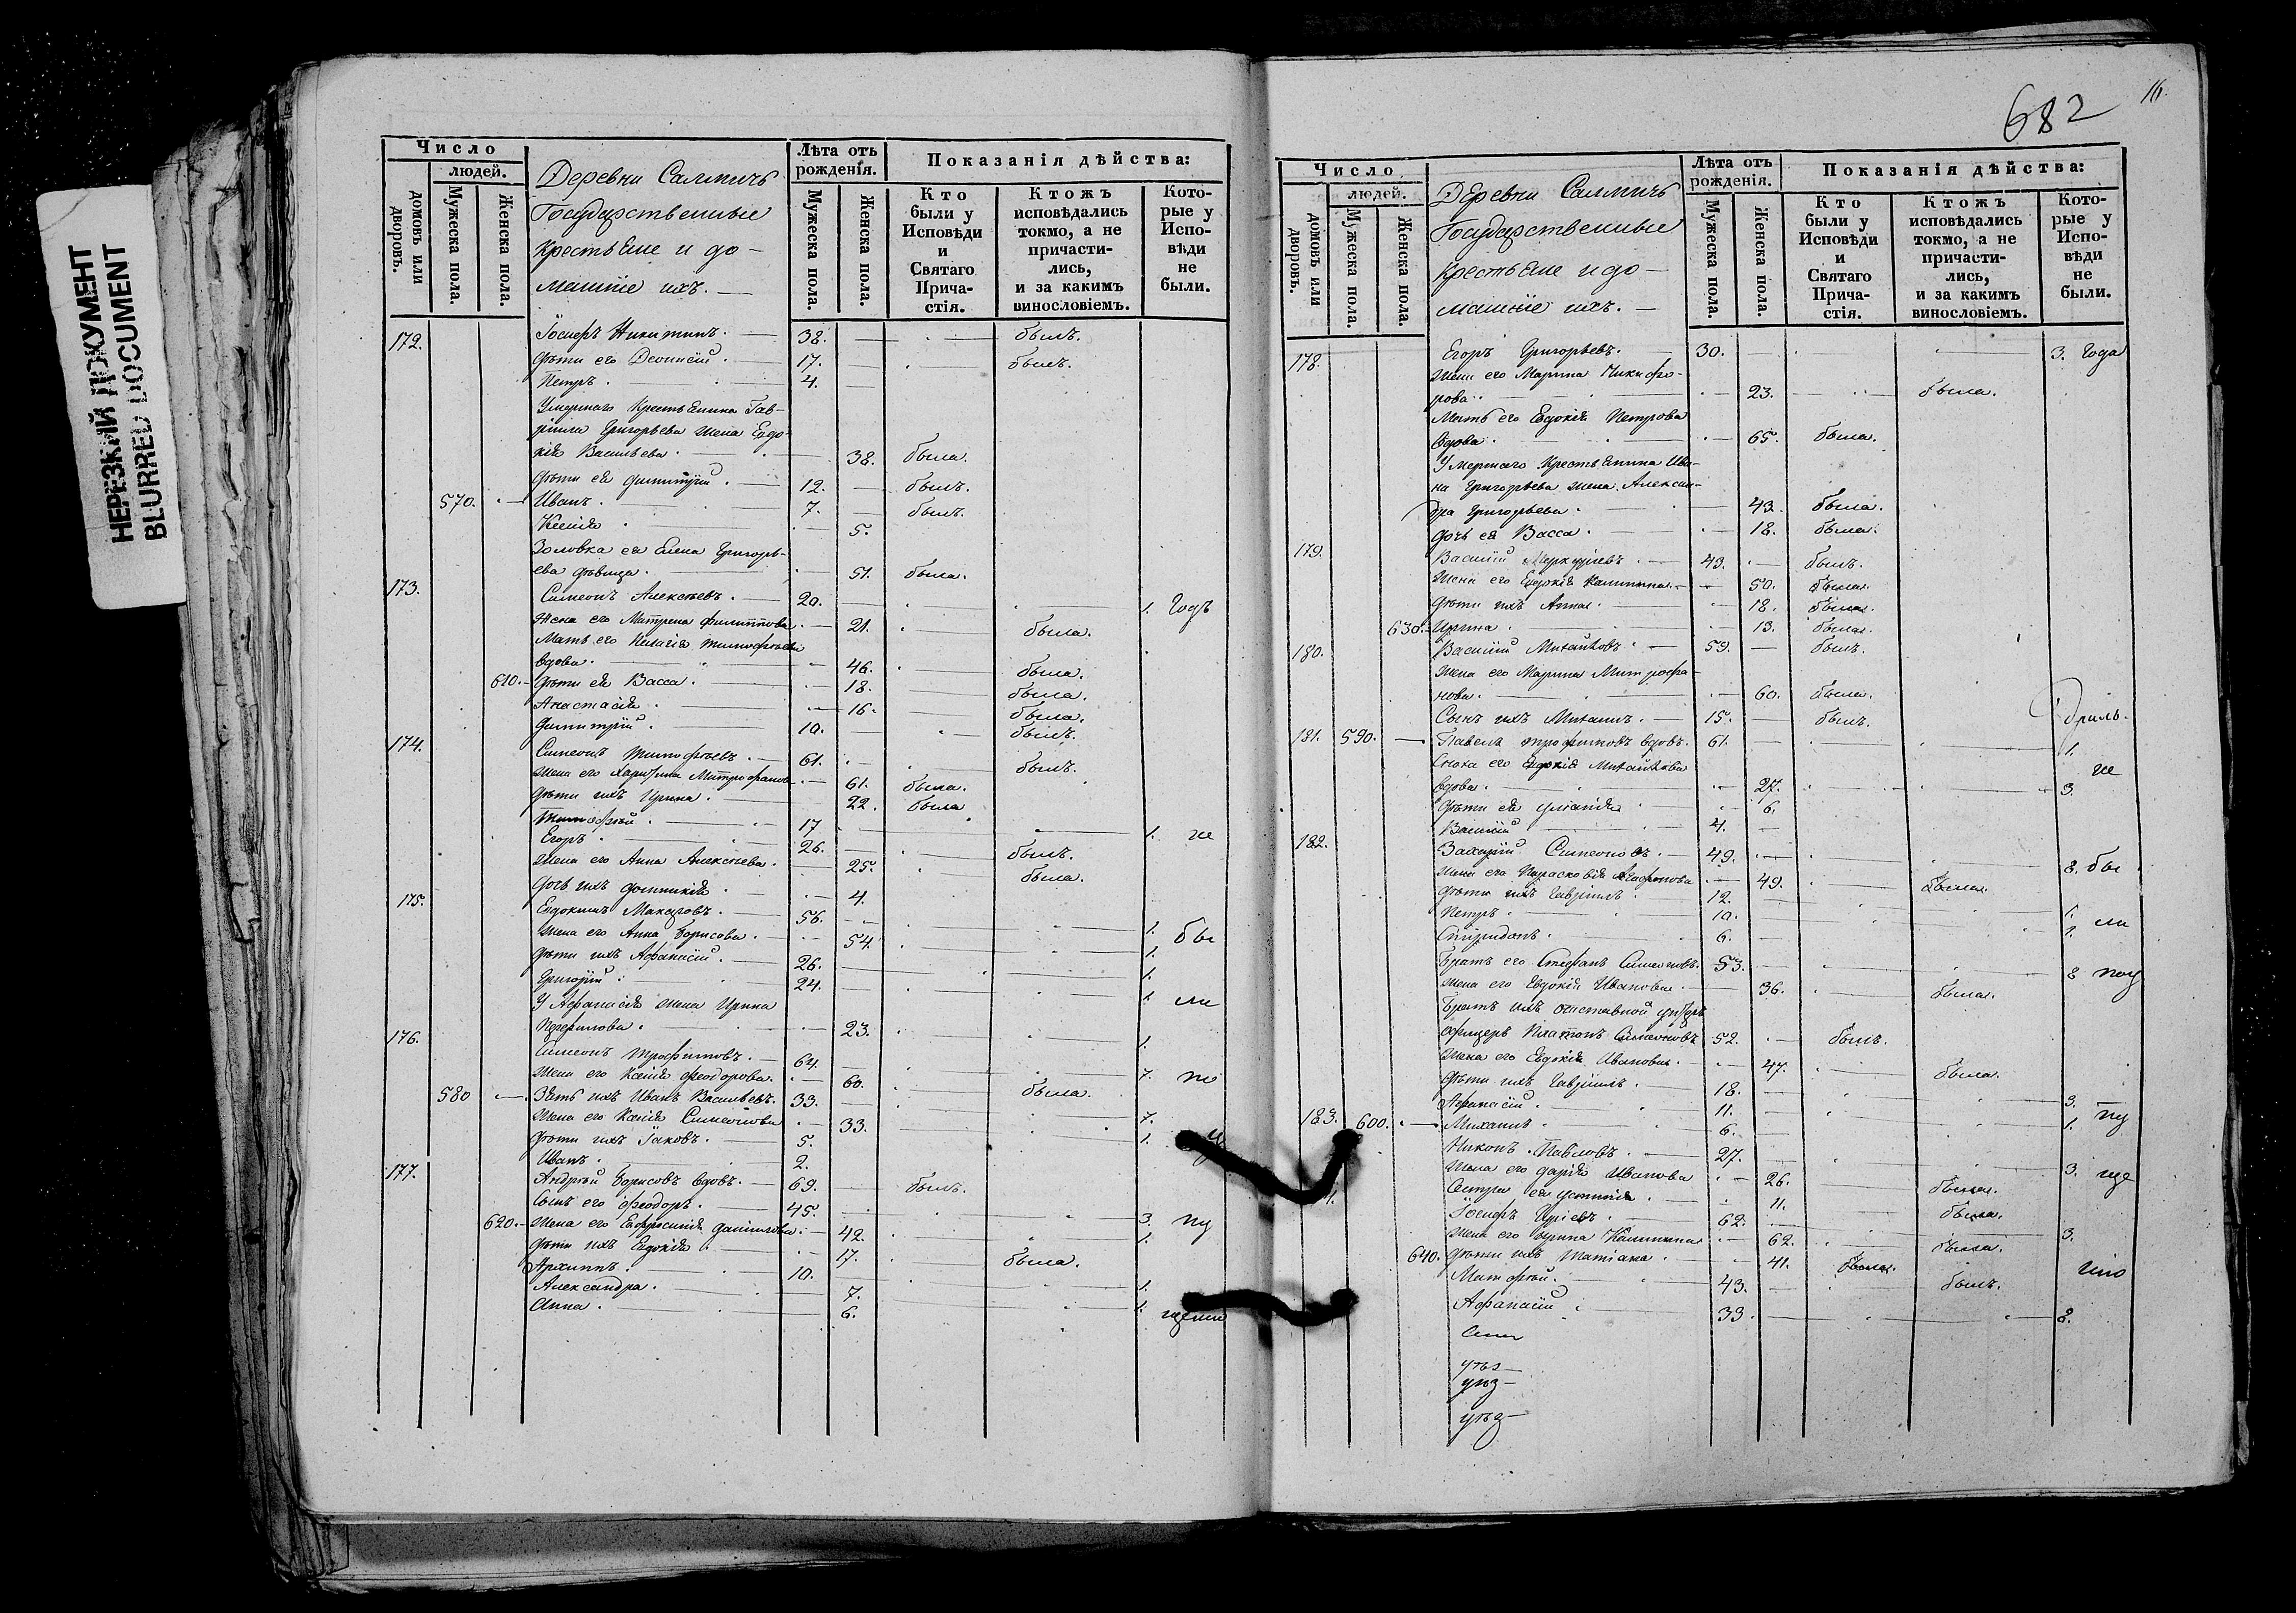 НЕРЕЗКИЙ ДОКУМЕНТ
BLURRED DOCUMENT
Число
людей.
домовъ или дворовъ.
Мужеска пола.
Женска пола.
Деревни
Государственные
Крестьяне и до-
машніе ихъ —
Лѣта отъ рожденія.
Мужеска пола.
Женска пола.
Показанія дѣйства:
Кто были у Исповѣди и Святаго Прича-стія.
Ктожъ исповѣдались токмо, а не причасти-лись, и за какимъ винословіемъ.
Кото-рые у Испо-вѣди не были.
172. Іосифъ Никитинъ. 38. былъ.
дѣти его Деонисій. 17. былъ.
Петръ. 4.
Умершаго Крестьянина Гав-
ріила Григорьева жена Евдо-
кія Васильева. 38. была.
дѣти ея Димитрій. 12. былъ.
570. Иванъ. 7. былъ.
Ксенія 5.
Золовка ея Елена Григорь-
ева дѣвица. 51. была.
173. Симеонъ Алексѣевъ. 20. 1. Годъ
Жена его Матрена Филиппова. 21. была.
Мать его Пелагія Тимофѣева
вдова. 46. была.
610. дѣти ея Васса. 18. была.
Анастасія 16. была.
Димитрій. 10. былъ.
174. Симеонъ Тимофѣевъ. 61. былъ.
жена его Харитина Митрофанова. 61. была.
дѣти ихъ Ирина. 22. была
Тимофей. 17 1. не
Егоръ 26. былъ.
жена его Анна Алексѣева. 25. была.
дочь ихъ Домникія 4.
175. Евдокимъ Макаровъ. 56. 1.
жена его Анна Борисова. 54. 1. бы
дѣти ихъ Афанасій. 26. 1.
Григорій 24. 1. ли
У Афанасія жена Ирина
23. 1.
176. Симеонъ Трофимовъ. 64. 7. по
жена его Ксенія Феодорова. 60. была.
580 Зять ихъ Иванъ Васильевъ. 33. 7.
жена его Ксенія Симеонова 33. 1.
дѣти ихъ Іаковъ. 5.
Иванъ. 2.
177. Андрей Борисовъ вдовъ. 69. былъ.
Сынъ его Феодоръ. 45. 3. пу
620. жена его Евфросинія Данилова. 42. 1.
дѣти ихъ Евдокія 17. была.
Архиппъ. 10. 1.
Александра. 7. 1.
Анна. 6. щены
682
16.
Число
людей.
домовъ или дворовъ.
Мужеска пола.
Женска пола.
Деревни
Государственные
Крестьяне и до-
машніе ихъ. —
Лѣта отъ рожденія.
Мужеска пола.
Женска пола.
Показанія дѣйства:
Кто были у Исповѣди и Святаго Прича-стія.
Ктожъ исповѣдались токмо, а не причасти-лись, и за какимъ винословіемъ.
Кото-рые у Испо-вѣди не были.
178. Егоръ Григорьевъ. 30. 3. Года
жена его Марина Никифо-
рова. 23. была.
Мать его Евдокія Петрова
вдова. 65. была.
Умершаго Крестьянина Ива-
на Григорьева жена Алексан-
дра Григорьева 43. была.
дочь ея Васса. 18. была.
179. Василій Меркурьевъ. 43. былъ.
жена его Евдокія Калинина. 50. была.
дѣти ихъ Анна. 18. была.
630. Ирина. 13. была.
180. Василій Михайловъ. 59. былъ.
жена его Марина Митрофа-
нова. 60. была.
Сынъ ихъ Михаилъ. 15. былъ.
181. 590. Павелъ Трофимовъ вдовъ. 61. 1.
Сноха его Евдокія Михайлова не
вдова. 27. 3.
дѣти ея 6.
Василій 4.
182. Захарій Симеоновъ. 49. 8. бы
жена его Парасковія 49. была.
дѣти ихъ Гавріилъ 12. 1.
Петръ. 10. 1. ли
Спиридонъ. 6.
Братъ его Стефанъ Симеоновъ. 53. 8 пου
жена его Евдокія Иванова. 36. была.
Братъ ихъ отставной унтеръ
офицеръ Платонъ Симеоновъ 52. былъ.
жена его Евдокія Иванова. 47. была.
дѣти ихъ Гавріилъ. 18. 3.
Афанасій. 11. 1. пу
183. 600. Михаилъ 6.
Никонъ Павловъ. 27. 3. ще
жена его Дарія Иванова 26. была.
Сестра ея Устинія 11. была.
Іосифъ 62. 3.
жена его Ирина Калинина 62. была.
640. дѣти ихъ Татіана. 41. была. ніо
Матфей. 43. былъ.
Афанасій 33. 8.